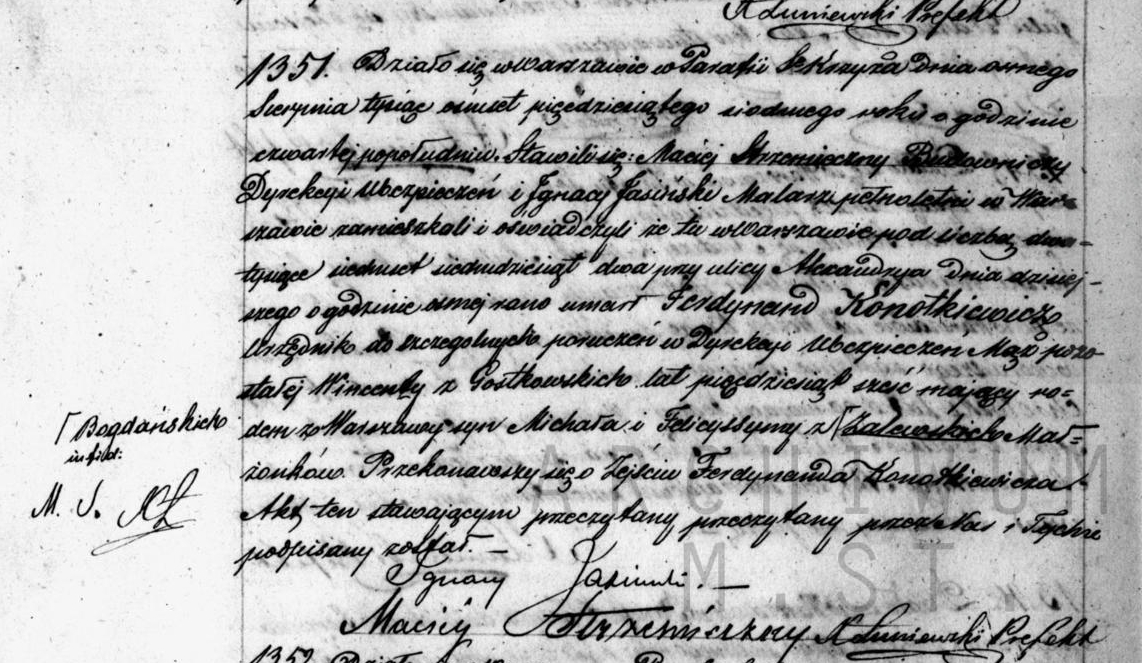 A Łuniewski Prefekt
1351. Działo się w Warszawie w Parafii Sgo Krzyża dnia osmego
Sierpnia tysiąc ośmset pięćdziesiątego siodmego roku o godzinie
czwartej popołudniu. Stawili się: Maciej Strzemieczny Budowniczy
Dyrekcyi Ubezpieczeń i Ignacy Jasiński Malarz pełnoletni w War-
szawie zamieszkali i oświadczyli że tu w Warszawie pod liczbą dwa-
tysiące siedmset siedmdziesiąt dwa przy ulicy Alexandrya dnia dzisiej-
szego o godzinie osmej rano umarł Ferdynand Konotkiewicz
Urzędnik do szczegolnych poruczeń w Dyrekcyi Ubezpieczen Mąż pozo-
stałej Wincenty z Gostkowskich lat pięćdziesiąt sześć mający ro-
dem z Warszawy syn Michała i Felicyssymy z Zalewskich Mał-
Bogdańskich
żonków. Przekonawszy się o Zejściu Ferdynanda Konotkiewicza
M. S. AŁ
Akt ten stawającym przeczytany przeczytany przez Nas i Tychże
podpisany został. –
Ignacy Jasinski. –
Maciéy Strzemieczny A Łuniewski Prefekt
1352. Działo
ARCHIWUM
M.ST.